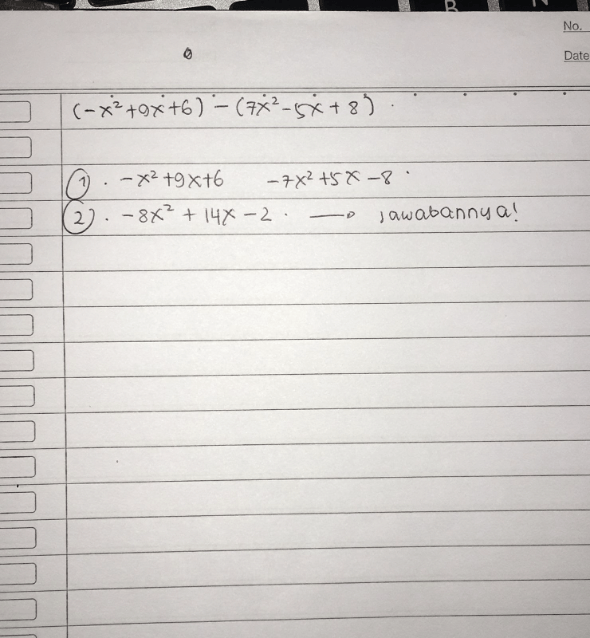 No.
Date
(-x²+9x+6) - (7x²-5x+8)
① . -x²+9x+6 -7x²+5x-8
② . -8x²+14x-2 . → jawabannya!